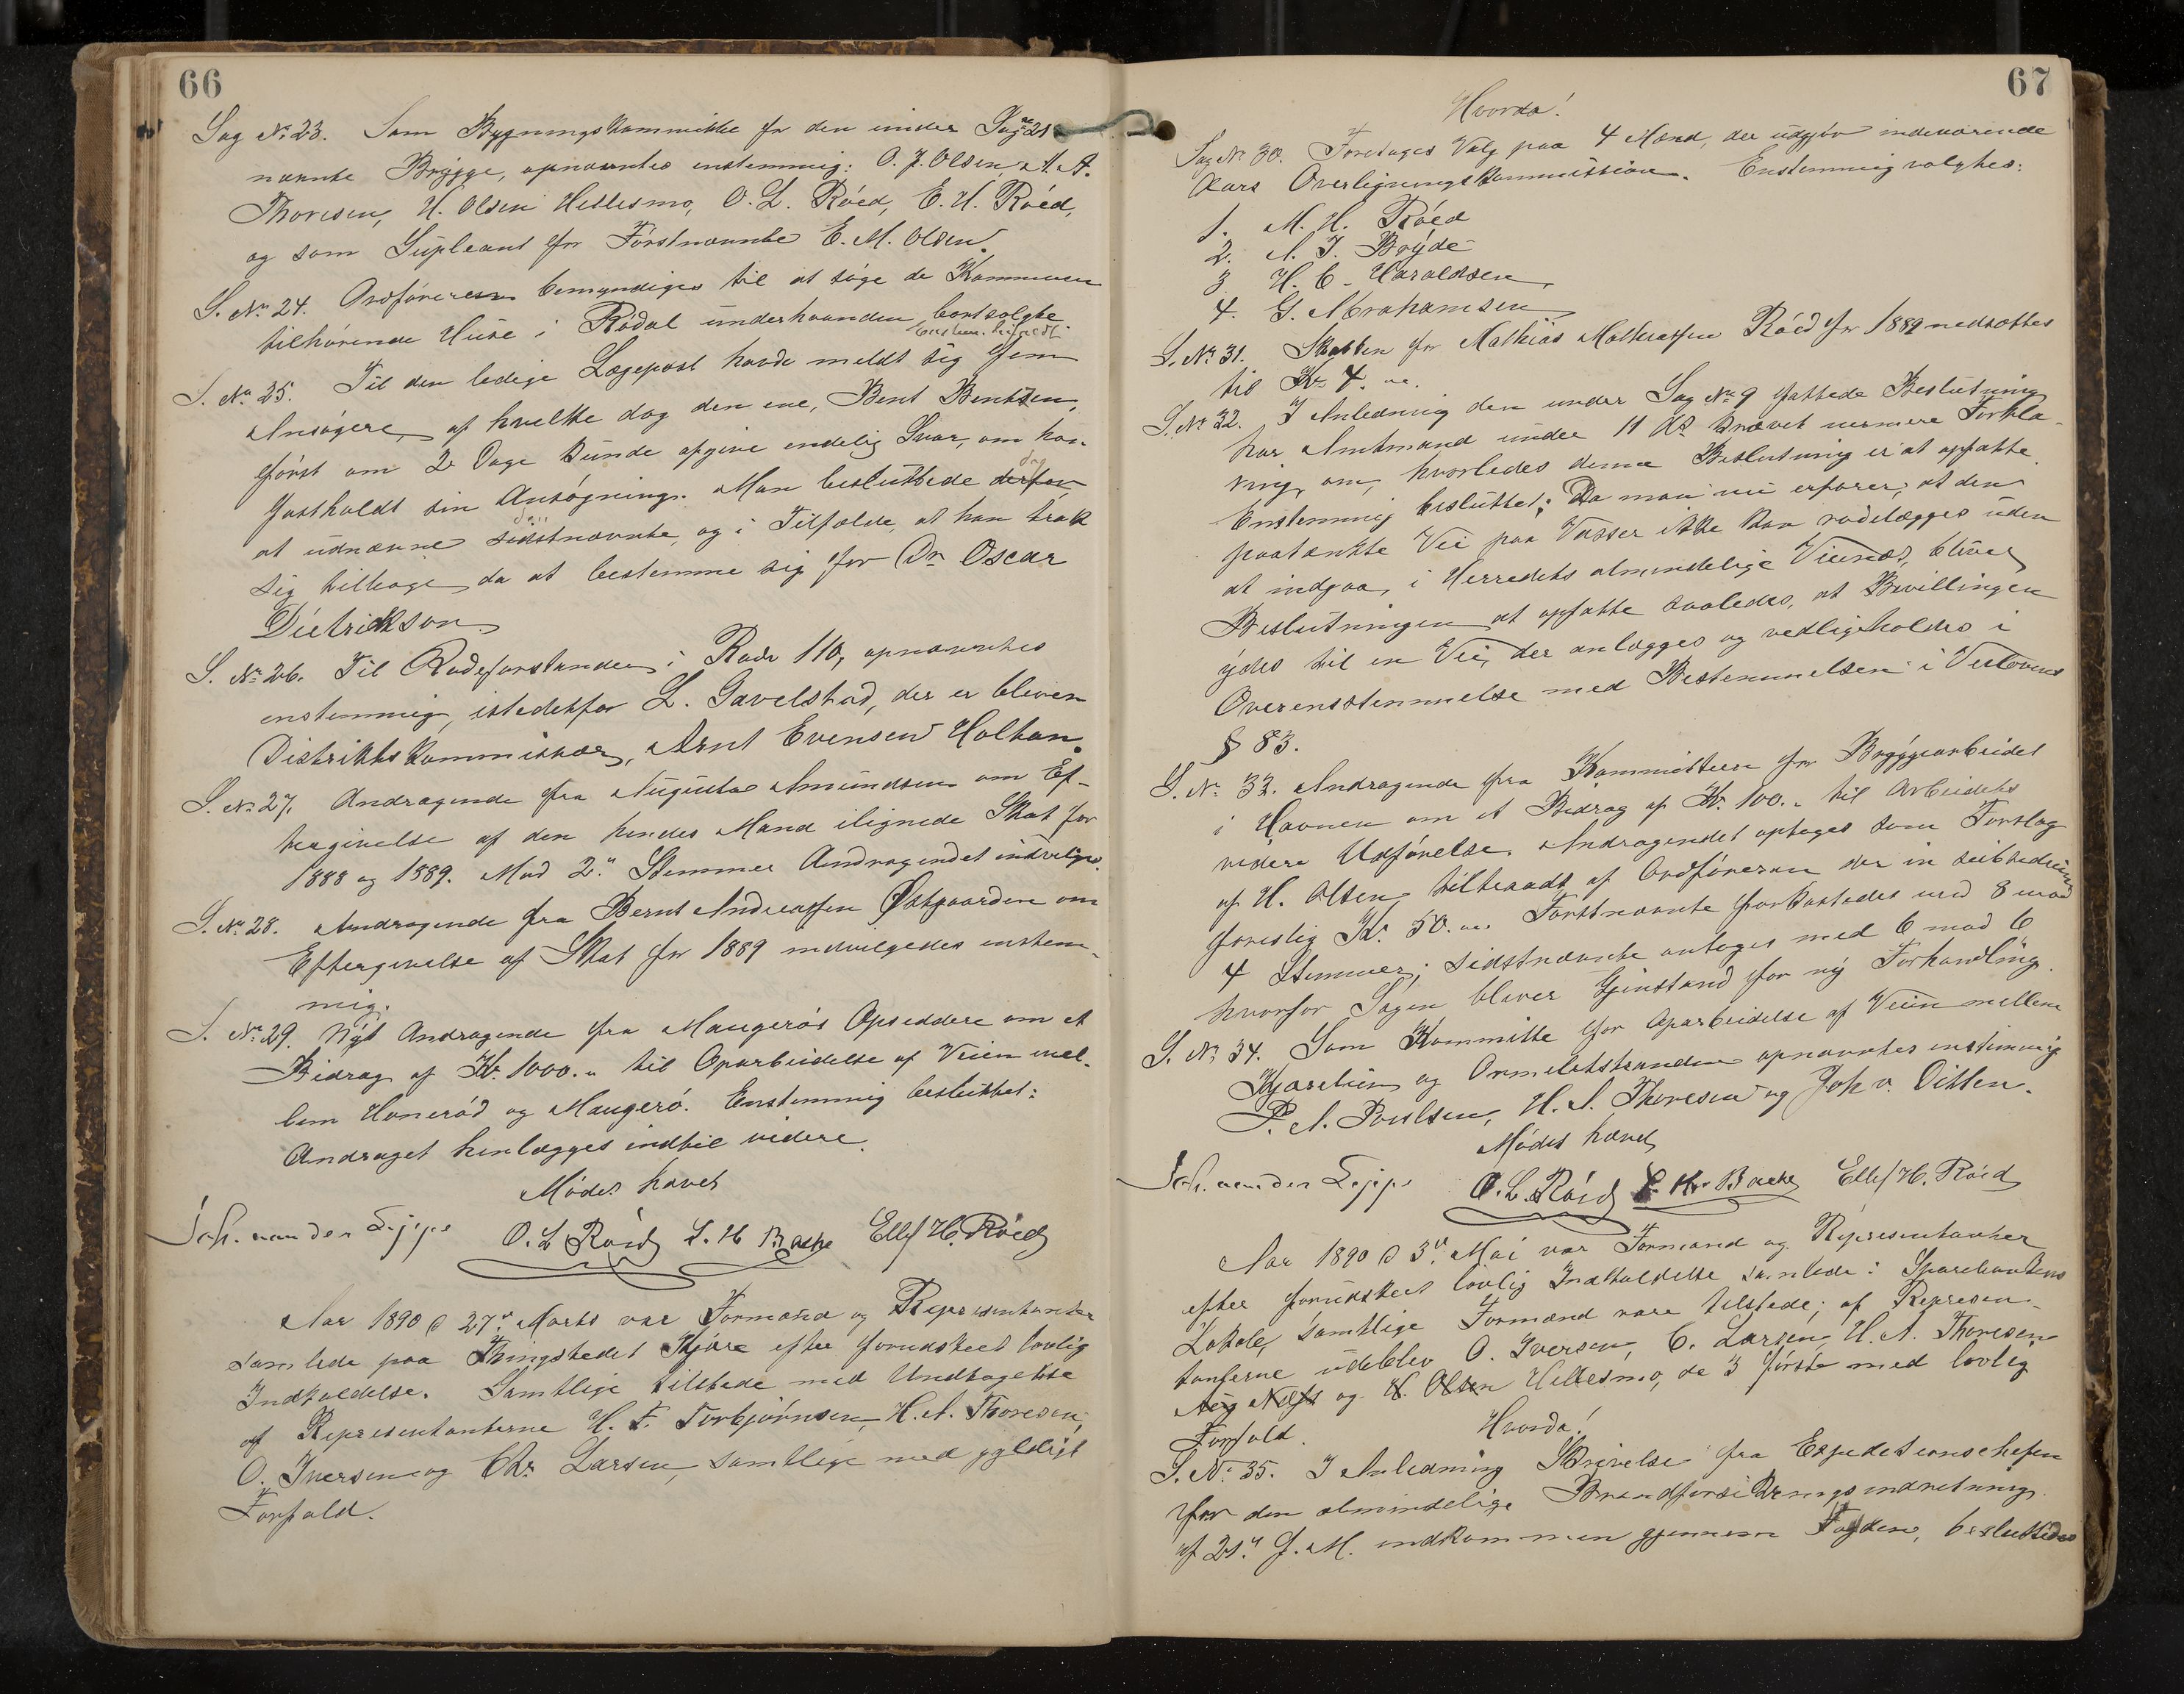 66
Sag No 23. Som Bygningskommitte for den under Sag No 21
nævnte Brygge, opnævntes enstemmig: O. J. Olsen, A. A.
Thoresen, H. Olsen Hellesmo, O. L. Røed, E. H. Røed,
og som Supleant for Førstnævnte E. M. Olsen.
S. No 24. Ordføreren bemyndiges til at søge de Kommunen
tilhørende Huse i Rødal underhaanden bortsolgte
S. No 25. Til den ledige Lægepost havde meldt sig fem
Ansøgere, af hvilke dog den ene, Bent Bentzen,
først om 2 Dage kunde afgive endelig Svar, om han
fastholdt sin Ansøgning. Man besluttede derfor dog
at udnævne sidstnævnte, og i Tilfælde, at han trak
sig tilbage, da at bestemme sig for Dr Oscar
Dietrickson.
S. No 26. Til Rodeforstander i Rode 110, opnævntes
enstemmig, istedetfor L. Gavelstad, der er bleven
Distriktskommissær, Arnt Evensen Holtan.
S. No 27. Andragende fra Augusta Amundsen om Ef-
tergivelse af den hendes Mand ilignede Skat for
1888 og 1889. Mod 2 Stemmer Andragendet indvilges.
S. No 28. Andragende fra Bernt Andreassen Østgaarden om
Eftergivelse af Skat for 1889 indvilgedes enstem-
mig.
S. No 29. Nyt Andragende fra Magerøs Opsiddere om et
Bidrag af Kr. 1000. " til Oparbeidelse af Veien mel-
lem Honerød og Magerø. Enstemmig besluttet:
Andraget henlægges indtil videre.
Mødet hævet
Joh. van der Lippe O. L. Røed L. K. Bache Ellef H. Røed
Aar 1890 d 27de Marts var Formænd og Repræsentanter
samlede paa Thingstedet Kjære efter forudskeet lovlig
Indkaldelse. Samtlige tilstede med Undtagelse
af Repræsentanterne H. F. Torbjørnsen, H. A. Thoresen,
O. Iversen og Chr. Larsen, samtlige med gyldigt
Forfald.
67
Hvorda!
Sag No 30. Foretages Valg paa 4 Mænd, der udgjør indeværende
Aars Overligningskommission. Enstemmig valgtes:
1. M. H. Røed
2. A. I. Bryde
3 H. C. Haraldsen
4. G. Abrahamsen
S. No 31. Skatten for Mathias Mathiassen Røed for 1889 nedsættes
til Kr 4. "
S. No 32. I Anledning den under Sag No 9 fattede Beslutning
har Amtmand under 11 ds krævet nærmere Forkla-
ring om, hvorledes denne Beslutning er at opfatte.
Enstemmig besluttet: Da man nu erfarer, at den
paatænkte Vei paa Vasser ikke kan rodelægges uden
at indgaa, i Herredets almindelige Veivæs, bliver
Beslutningen at opfatte saaledes, at Bevillingen
ydes til en Vei, der anlægges og vedligeholdes i
Overensstemmelse med Bestemmelsen i Veilovens
§ 83.
S. No 33. Andragende fra Kommitteen for Bryggearbeidet
i Havnen om et Bidrag af Kr. 100. " til Arbeidets
videre Udførelse. Andragendet optages som Forslag
af H. Olsen tiltraadt af Ordføreren der in
foreslog Kr. 50. " Førstnævnte forkastedes med 8 mod
4 Stemmer; sidstnævnte antoges med 6 mod 6
hvorfor Sagen bliver Gjenstand for ny Forhandling.
S. No 34. Som Kommitte for Oparbeidelse af Veien mellem
Kjærelien og Ormeletstranden opnævntes enstemmig
P. A. Poulsen, H. A. Thoresen og Joh v. Ditten.
Mødet hævet
Joh. van der Lippe O. L. Røed L. Kr. Bache Ellef H. Røed
Aar 1890 d 3de Mai var Formænd og Repræsentanter
efter forudskeet lovlig Indkaldelse samlede i Sparebankens
Lokale, samtlige Formænd vare tilstede; af Repræsen-
tanterne udeblev O. Iversen, C. Larsen, H. A. Thoresen
og H. Olsen Hellesmo, de 3 første med lovlig
Forfald.
Hvorda!
S. No 35. I Anledning Skrivelse fra Expeditionschefen
for den almindelige Brandforsikringsindretning
af 21de f. M. indkommen gjennem Fogden, besluttedes